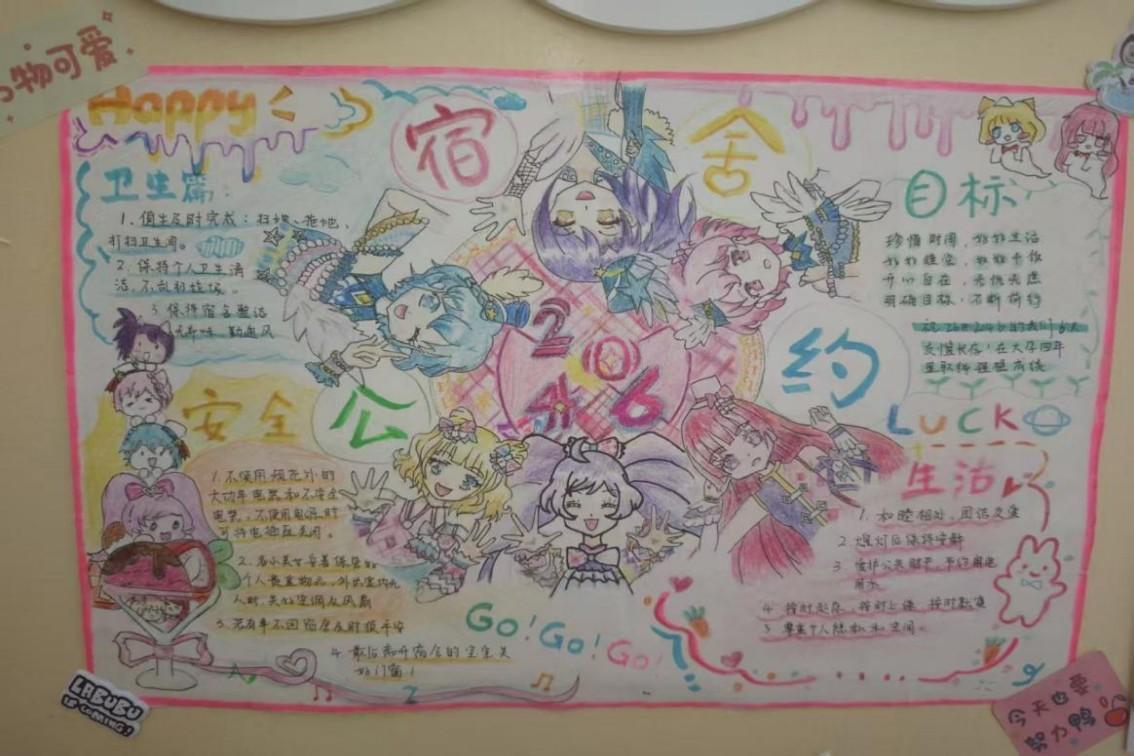 物可爱
Happy
宿舍公约
2046
卫生篇:
1. 值生及时完成：扫地、拖地、
打扫卫生间。
2. 保持个人卫生清
洁，不乱扔垃圾。
3. 保持宿舍整洁
无异味 勤通风
安全
1. 不使用规范外的
大功率电器和不安全
电器，不使用电源时
可将电拔至关闭。
2. 各小美女妥善保管好
个人贵重物品，外出室内无
人时，关好空调及风扇
3. 若有事不回宿舍及时报平安
4. 最后离开宿舍的宝宝关
好门窗!
目标
珍惜时间，好好生活
好好睡觉，好好干饭
开心自在，无忧无虑
明确目标，不断前行
友谊长存！在大学四年
LUCK
生活
1. 和睦相处，团结友爱
2. 熄灯后保持安静
3 爱护公共财产，节约用电
用水
4 按时起床，按时上课，按时就寝
5 尊重个人隐私和空间。
Go! Go! Go!
LABUBU
IS COMING!
今天也要
努力鸭